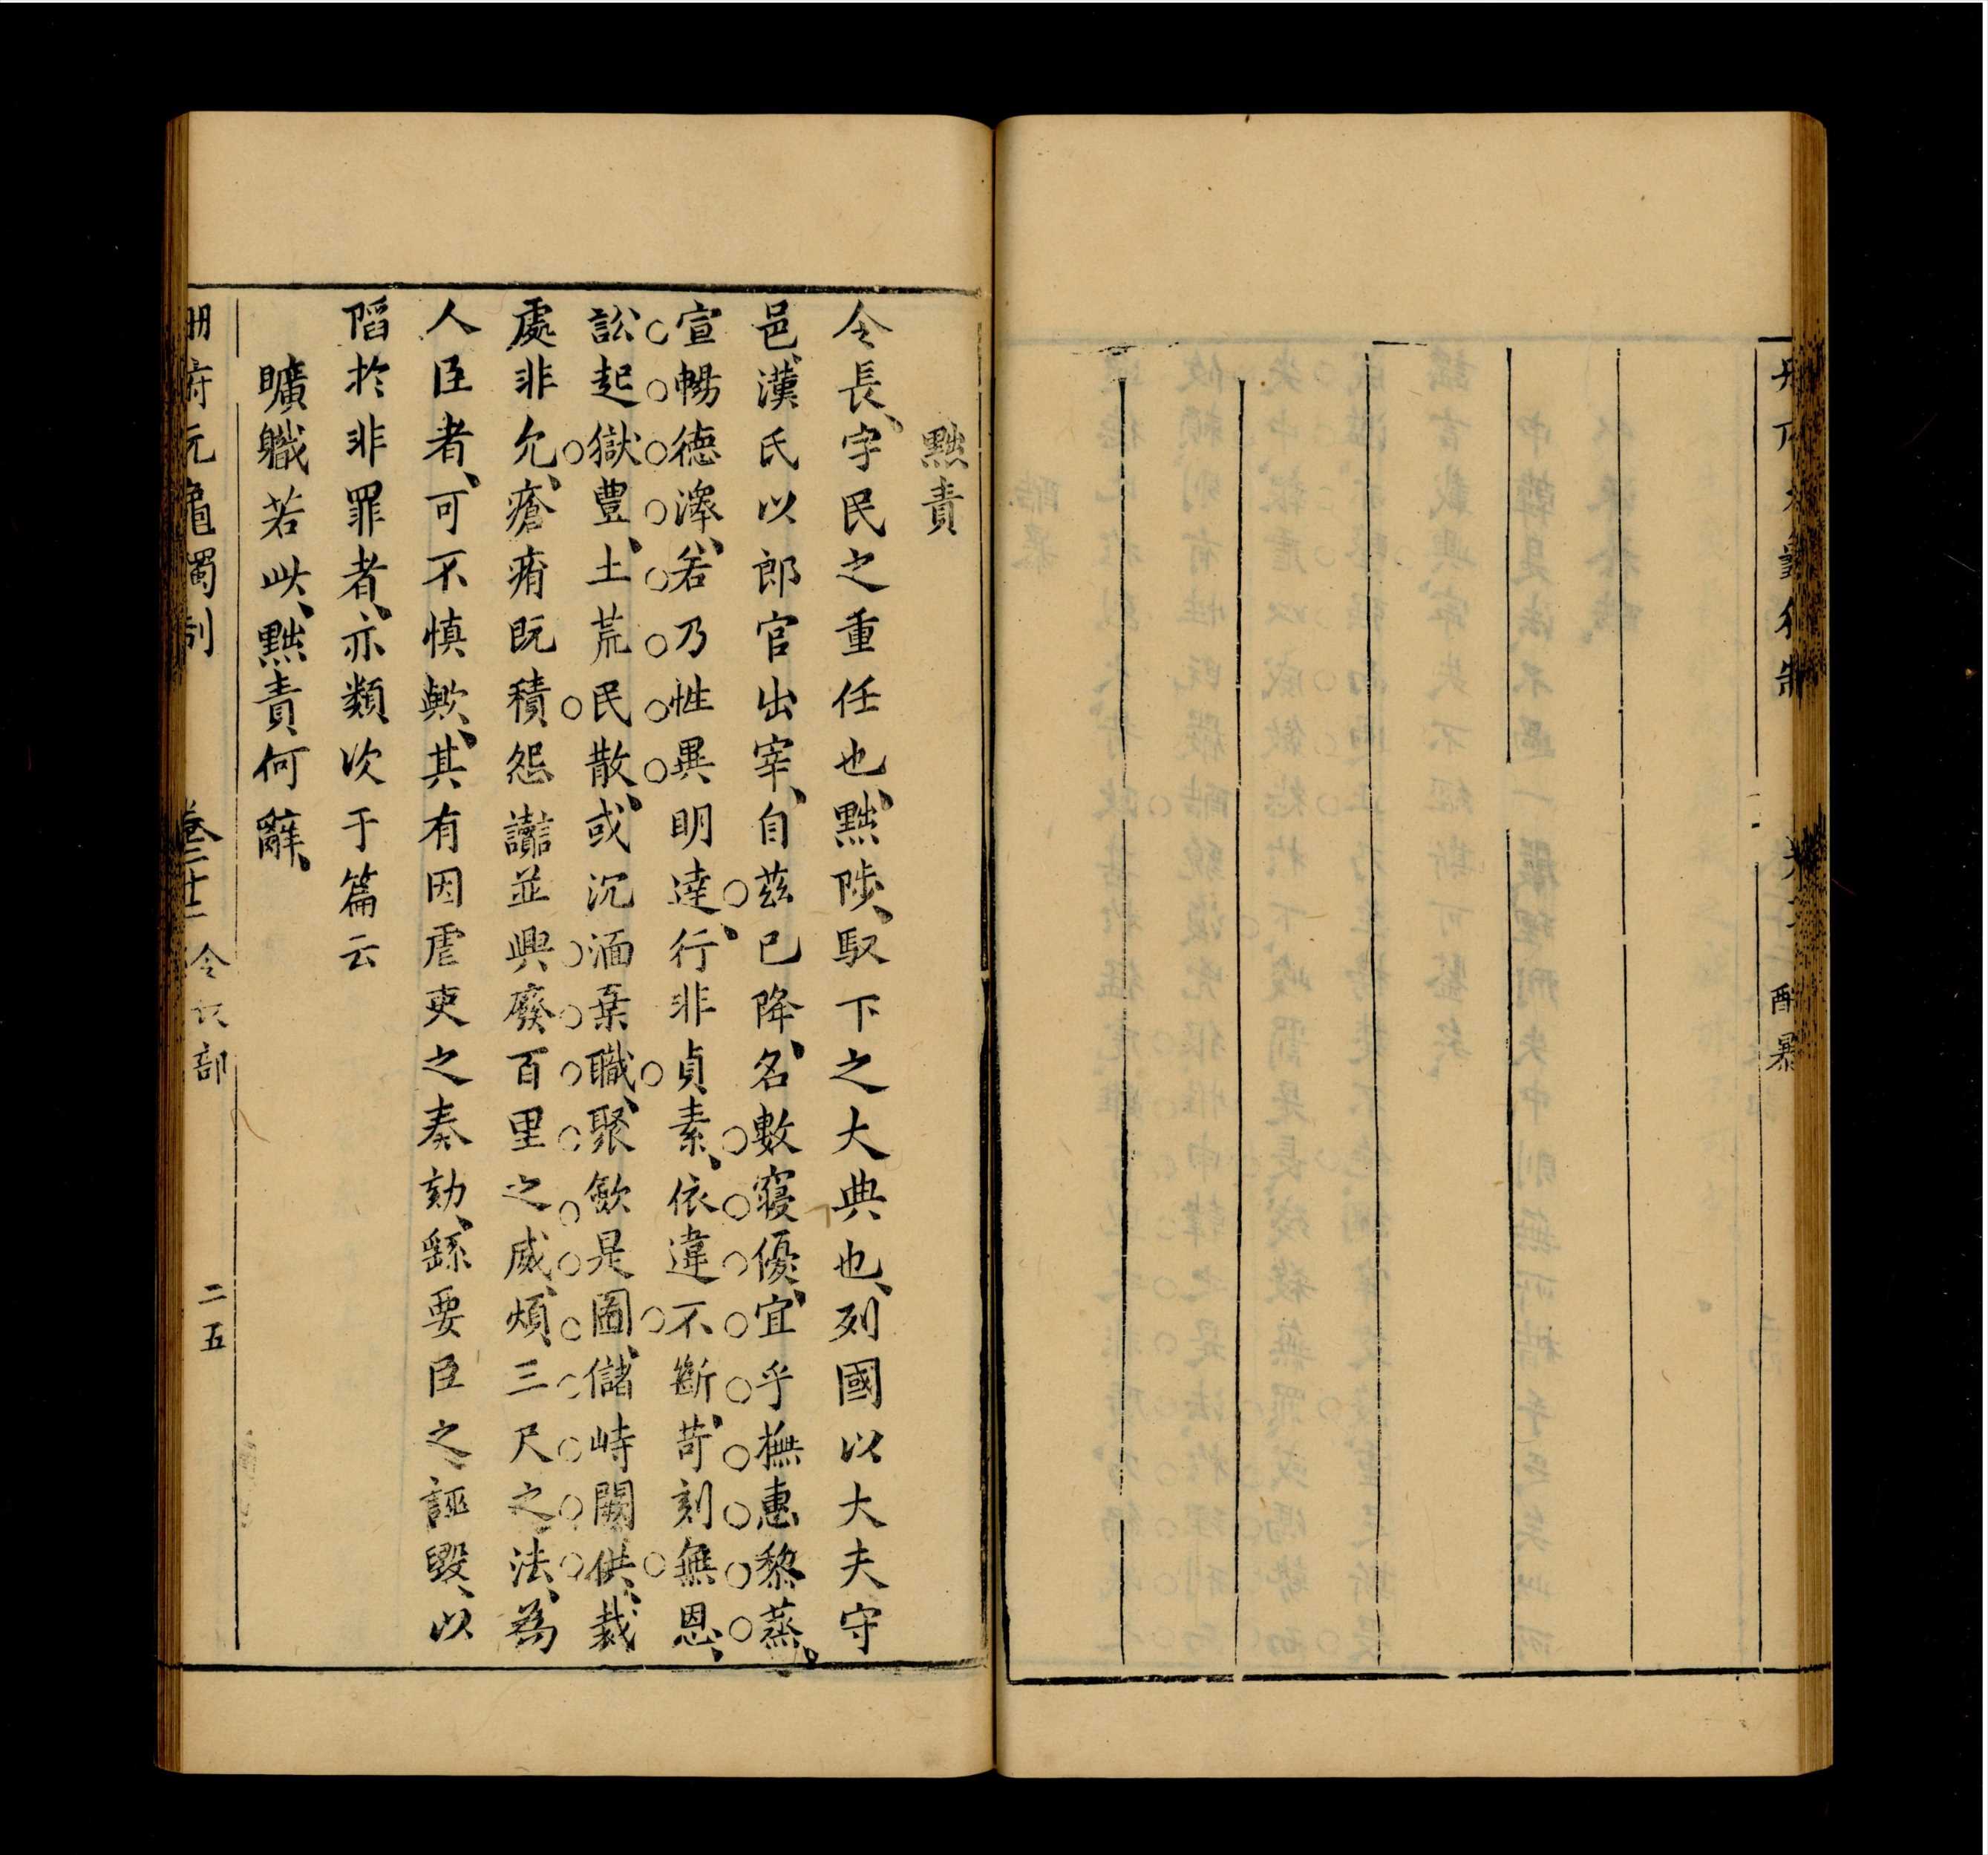 酷暴
黜責
令長、字民之重任也、黜陟、馭下之大典也、列國以大夫守
邑、漢氏以郎官出宰、自茲已降、名數寖優、宜乎撫惠黎蒸。
宣暢德澤、若乃性異明達、行非貞素、依違不斷、苛刻無恩、
訟起獄豐、土荒民散、或沉湎棄職、聚斂是圖、儲峙闕供、裁
處非允、瘡痏既積、怨讟並興、廢百里之威、煩三尺之法、為
人臣者、可不慎歟、其有因虐吏之奏劾、繇要臣之誣毀、以
陷於非罪者、亦類次于篇云
曠職若此、黜責何辭、
冊府元龜獨制
令長部
二五